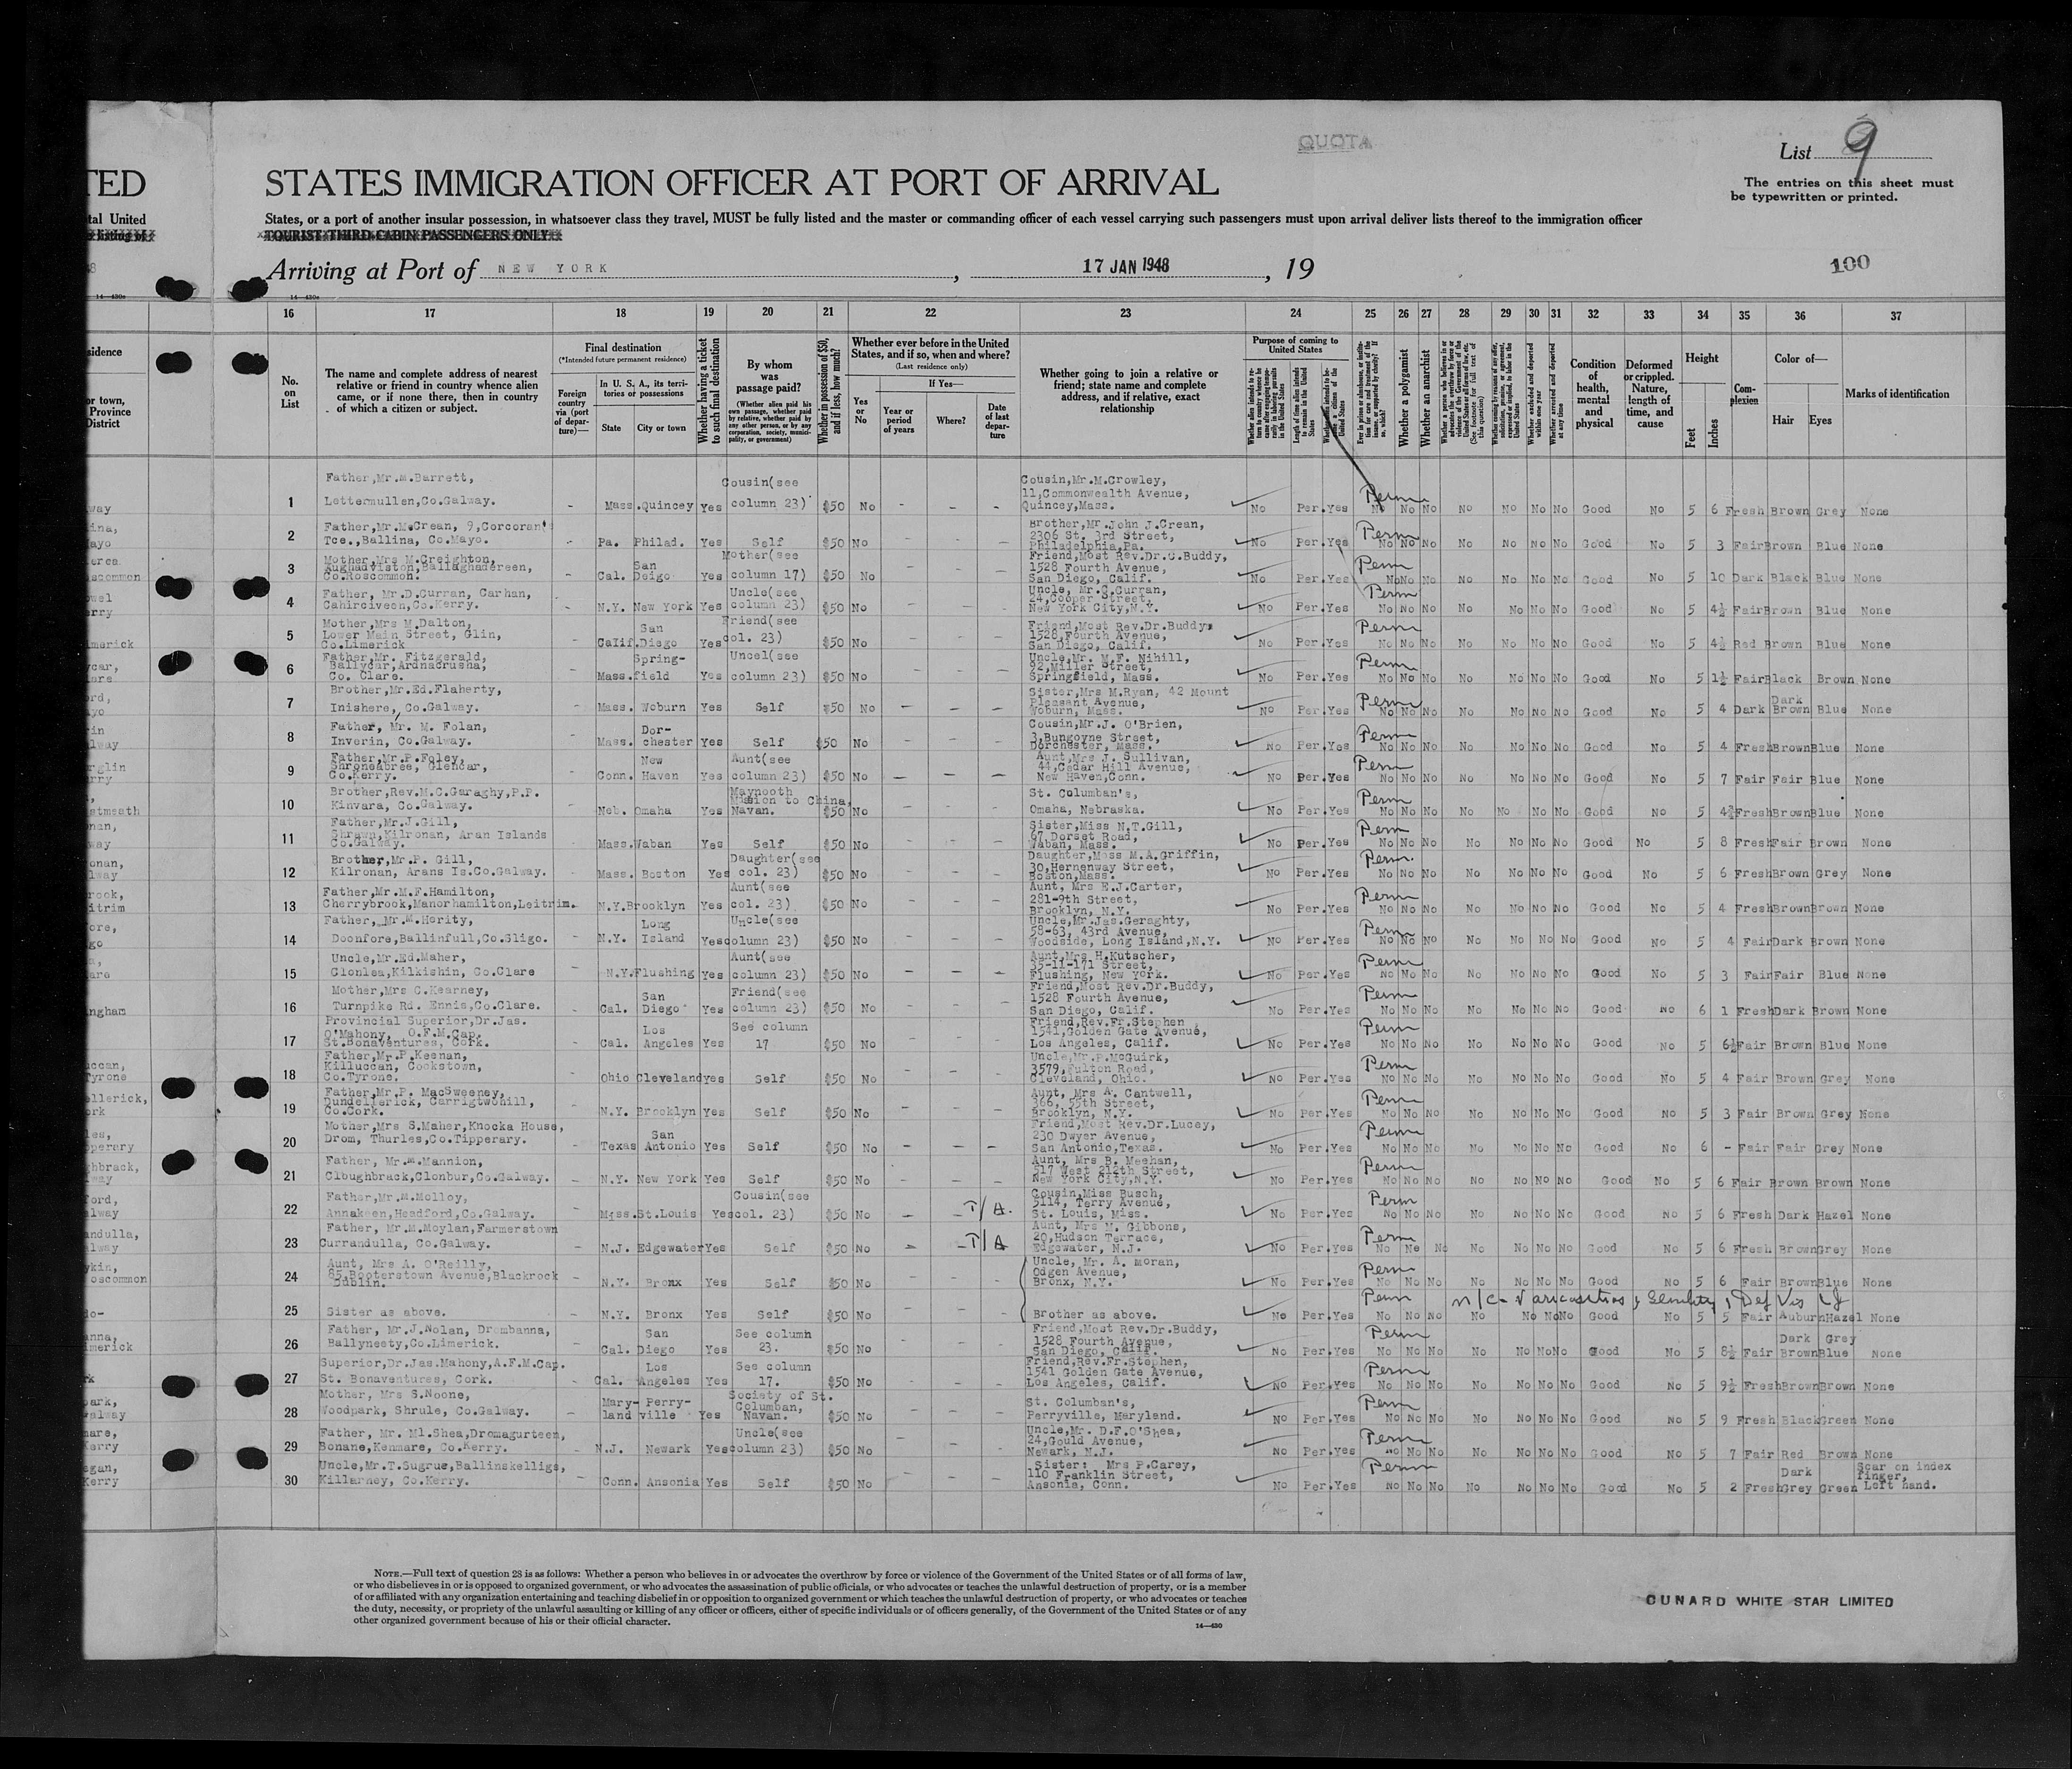 QUOTA
List 9
The entries on this sheet must
be typewritten or printed.
TED
tal United
STATES IMMIGRATION OFFICER AT PORT OF ARRIVAL
States, or a port of another insular possession, in whatsoever class they travel, MUST be fully listed and the master or commanding officer of each vessel carrying such passengers must upon arrival deliver lists thereof to the immigration officer
TOURIST THIRD-CABIN PASSENGERS ONLY
Arriving at Port of NEW YORK, 17 JAN 1948, 19
100
16 17 18 19 20 21 22 23 24 25 26 27 28 29 30 31 32 33 34 35 36 37
No. on List
The name and complete address of nearest relative or friend in country whence alien came, or if none there, then in country of which a citizen or subject.
Final destination
(*Intended future permanent residence)
Foreign country via (port of departure)—
In U. S. A., its territories or possessions
State
City or town
Whether having a ticket to such final destination
By whom was passage paid?
(Whether alien paid his own passage, whether paid by relative, whether paid by any other person, or by any corporation, society, municipality, or government)
Whether in possession of $50, and if less, how much?
Whether ever before in the United States, and if so, when and where?
(Last residence only)
Yes or No
If Yes—
Year or period of years
Where?
Date of last departure
Whether going to join a relative or friend; state name and complete address, and if relative, exact relationship
Purpose of coming to United States
Whether a polygamist
Whether an anarchist
Condition of health, mental and physical
Deformed or crippled. Nature, length of time, and cause
Height
Feet
Inches
Complexion
Color of—
Hair
Eyes
Marks of identification
1 Father,Mr.M.Barrett, Lettermullen,Co.Galway. - Mass. Quincey Yes Cousin(see column 23) $50 No - - - Cousin,Mr.M.Crowley, 11,Commonwealth Avenue, Quincey,Mass. No Per. Yes Perm No No No No No No No Good No 5 6 Fresh Brown Grey None
2 Father,Mr.M.Crean, 9,Corcoran's Tce.,Ballina, Co.Mayo. - Pa. Philad. Yes Self $50 No - - - Brother,Mr.John J.Crean, 2306 St. 3rd Street, Philadelphia,Pa. No Per. Yes Perm No No No No No No No Good No 5 3 Fair Brown Blue None
3 Mother,Mrs M.Creighton, Aughadviston,Ballaghadereen, Co.Roscommon. - Cal. San Deigo Yes Mother(see column 17) $50 No - - - Friend,Most Rev.Dr.C.Buddy, 1528 Fourth Avenue, San Diego, Calif. No Per. Yes Perm No No No No No No No Good No 5 10 Dark Black Blue None
4 Father, Mr.D.Curran, Carhan, Cahirciveen,Co.Kerry. - N.Y. New York Yes Uncle(see column 23) $50 No - - - Uncle, Mr.C.Curran, 24,Cooper Street, New York City,N.Y. No Per. Yes Perm No No No No No No No Good No 5 4½ Fair Brown Blue None
5 Mother,Mrs M.Dalton, Lower Main Street, Glin, Co.Limerick - Calif. San Diego Yes Friend(see col. 23) $50 No - - - Friend,Most Rev.Dr.Buddy, 1528,Fourth Avenue, San Diego, Calif. No Per. Yes Perm No No No No No No No Good No 5 4½ Red Brown Blue None
6 Father,Mr. Fitzgerald, Ballycar,Ardnacrusha, Co. Clare. - Mass. Spring-field Yes Uncel(see column 23) $50 No - - - Uncle,Mr. M.F. Nihill, 92,Miller Street, Springfield, Mass. No Per. Yes Perm No No No No No No No Good No 5 1½ Fair Black Brown None
7 Brother,Mr.Ed.Flaherty, Inishere, Co.Galway. - Mass. Woburn Yes Self $50 No - - - Sister,Mrs M.Ryan, 42 Mount Pleasant Avenue, Woburn, Mass. No Per. Yes Perm No No No No No No No Good No 5 4 Dark Dark Brown Blue None
8 Father, Mr. M. Folan, Inverin, Co.Galway. - Mass. Dor-chester Yes Self $50 No - - - Cousin,Mr.J. O'Brien, 3,Bungoyne Street, Dorchester, Mass. No Per. Yes Perm No No No No No No No Good No 5 4 Fresh Brown Blue None
9 Father,Mr.P.Foley, Shroneabree, Glencar, Co.Kerry. - Conn. New Haven Yes Aunt(see column 23) $50 No - - - Aunt,Mrs J. Sullivan, 44,Cedar Hill Avenue, New Haven,Conn. No Per. Yes Perm No No No No No No No Good No 5 7 Fair Fair Blue None
10 Brother,Rev.M.C.Geraghy,P.P. Kinvara, Co.Galway. - Neb. Omaha Yes Maynooth Mission to China, Navan. $50 No - - - St. Columban's, Omaha, Nebraska. No Per. Yes Perm No No No No No No No Good No 5 Fresh Brown Blue None
11 Father,Mr.J.Gill, Shrawn,Kilronan, Aran Islands Co.Galway. - Mass. Waban Yes Self $50 No - - - Sister,Miss N.T.Gill, 67,Dorset Road, Waban, Mass. No Per. Yes Perm No No No No No No No Good No 5 8 Fresh Fair Brown None
12 Brother,Mr.P. Gill, Kilronan, Arans Is.Co.Galway. - Mass. Boston Yes Daughter(see col. 23) $50 No - - - Daughter,Mess M.A.Griffin, 30,Hernenway Street, Boston,Mass. No Per. Yes Perm. No No No No No No No Good No 5 6 Fresh Brown Grey None
13 Father,Mr.M.F.Hamilton, Cherrybrook,Manorhamilton,Leitrim. N.Y. Brooklyn Yes Aunt(see col. 23) $50 No - - - Aunt, Mrs E.J.Carter, 281-9th Street, Brooklyn, N.Y. No Per. Yes Perm No No No No No No No Good No 5 4 Fresh Brown Brown None
14 Father, Mr.M.Herity, Doonfore,Ballinfull,Co.Sligo. - N.Y. Long Island Yes Uncle(see column 23) $50 No - - - Uncle,Mr.Jas.Geraghty, 58-63, 43rd Avenue, Woodside, Long Island,N.Y. No Per. Yes Perm No No No No No No No Good No 5 4 Fair Dark Brown None
15 Uncle,Mr.Ed.Maher, Clonlea,Kilkishin, Co.Clare - N.Y. Flushing Yes Aunt(see column 23) $50 No - - - Aunt,Mrs H.Kutscher, 35-11-171 Street, Flushing, New York. No Per. Yes Perm No No No No No No No Good No 5 3 Fair Fair Blue None
16 Mother,Mrs C.Kearney, Turnpike Rd. Ennis,Co.Clare. - Cal. San Diego Yes Friend(see column 23) $50 No - - - Friend,Most Rev.Dr.Buddy, 1528 Fourth Avenue, San Diego, Calif. No Per. Yes Perm No No No No No No No Good No 6 1 Fresh Dark Brown None
17 Provincial Superior,Dr.Jas. O'Mahony, O.F.M.Cap. St.Bonaventures, Cork. - Cal. Los Angeles Yes See column 17 $50 No - - - Friend,Rev.Fr.Stephen 1541,Golden Gate Avenue, Los Angeles, Calif. No Per. Yes Perm No No No No No No No Good No 5 6½ Fair Brown Blue None
18 Father,Mr.P.Keenan, Killuccan, Cookstown, Co.Tyrone. - Ohio Cleveland yes Self $50 No - - - Uncle,Mr.P.McGuirk, 3579,Fulton Road, Cleveland, Ohio. No Per. Yes Perm No No No No No No No Good No 5 4 Fair Brown Grey None
19 Father,Mr.P. MacSweeney, Dundellerick, Carrigtwohill, Co.Cork. - N.Y. Brooklyn Yes Self $50 No - - - Aunt, Mrs A. Cantwell, 366, 55th Street, Brooklyn, N.Y. No Per. Yes Perm No No No No No No No Good No 5 3 Fair Brown Grey None
20 Mother,Mrs S.Maher,Knocka House, Drom, Thurles,Co.Tipperary. - Texas San Antonio Yes Self $50 No - - - Friend,Most Rev.Dr.Lucey, 230 Dwyer Avenue, San Antonio,Texas. No Per. Yes Perm No No No No No No No Good No 6 - Fair Fair Grey None
21 Father, Mr.M.Mannion, Cloughbrack,Clonbur,Co.Galway. - N.Y. New York Yes Self $50 No - - - Aunt, Mrs B. Meehan, 517 West 212th Street, New York City,N.Y. No Per. Yes Perm No No No No No No No Good No 5 6 Fair Brown Brown None
22 Father,Mr.M.Molloy, Annakeen,Headford,Co.Galway. - Miss. St.Louis Yes Cousin(see col. 23) $50 No - - T/A. Cousin,Miss Busch, 5114, Terry Avenue, St. Louis, Miss. No Per. Yes Perm No No No No No No No Good No 5 6 Fresh Dark Hazel None
23 Father, Mr.M.Moylan,Farmerstown Currandulla, Co.Galway. - N.J. Edgewater Yes Self $50 No - - T/A Aunt, Mrs M. Gibbons, 20,Hudson Terrace, Edgewater, N.J. No Per. Yes Perm No No No No No No No Good No 5 6 Fresh Brown Grey None
24 Aunt, Mrs A. O'Reilly, 85,Booterstown Avenue,Blackrock Dublin. - N.Y. Bronx Yes Self $50 No - - - Uncle, Mr. A. Moran, Odgen Avenue, Bronx, N.Y. No Per. Yes Perm No No No No No No No Good No 5 6 Fair Brown Blue None
25 Sister as above. - N.Y. Bronx Yes Self $50 No - - - Brother as above. No Per. Yes Perm m/c - Varicosities, Senility, Def Vis No No No No No No No Good No 5 5 Fair Auburn Hazel None
26 Father, Mr.J.Nolan, Drombanna, Ballyneety,Co.Limerick. Cal. San Diego Yes See column 23. $50 No - - - Friend,Most Rev.Dr.Buddy, 1528 Fourth Avenue, San Diego, Calif. No Per. Yes Perm No No No No No No No Good No 5 8½ Fair Dark Brown Grey Blue None
27 Superior,Dr.Jas.Mahony,A.F.M.Cap. St. Bonaventures, Cork. - Cal. Los Angeles Yes See column 17. $50 No - - - Friend,Rev.Fr.Stephen, 1541 Golden Gate Avenue, Los Angeles, Calif. No Per. Yes Perm No No No No No No No Good No 5 9½ Fresh Brown Brown None
28 Mother, Mrs S.Noone, Woodpark, Shrule, Co.Galway. - Mary-land Perry-ville Yes Society of St. Columban, Navan. $50 No - - - St. Columban's, Perryville, Maryland. No Per. Yes Perm No No No No No No No Good No 5 9 Fresh Black Green None
29 Father, Mr. Ml.Shea,Dromagurteen, Bonane,Kenmare, Co.Kerry. - N.J. Newark Yes Uncle(see column 23) $50 No - - - Uncle,Mr. D.F.O'Shea, 24,Gould Avenue, Newark, N.J. No Per. Yes Perm No No No No No No No Good No 5 7 Fair Red Brown None
30 Uncle,Mr.T.Sugrue,Ballinskelligs, Killarney, Co.Kerry. - Conn. Ansonia Yes Self $50 No - - - Sister: Mrs P.Carey, 110 Franklin Street, Ansonia, Conn. No Per. Yes Perm No No No No No No No Good No 5 2 Fresh Dark Grey Green Scar on index finger, Left hand.
NOTE.—Full text of question 28 is as follows: Whether a person who believes in or advocates the overthrow by force or violence of the Government of the United States or of all forms of law,
or who disbelieves in or is opposed to organized government, or who advocates the assassination of public officials, or who advocates or teaches the unlawful destruction of property, or is a member
of or affiliated with any organization entertaining and teaching disbelief in or opposition to organized government or which teaches the unlawful destruction of property, or who advocates or teaches
the duty, necessity, or propriety of the unlawful assaulting or killing of any officer or officers, either of specific individuals or of officers generally, of the Government of the United States or of any
other organized government because of his or their official character.
14—430
CUNARD WHITE STAR LIMITED